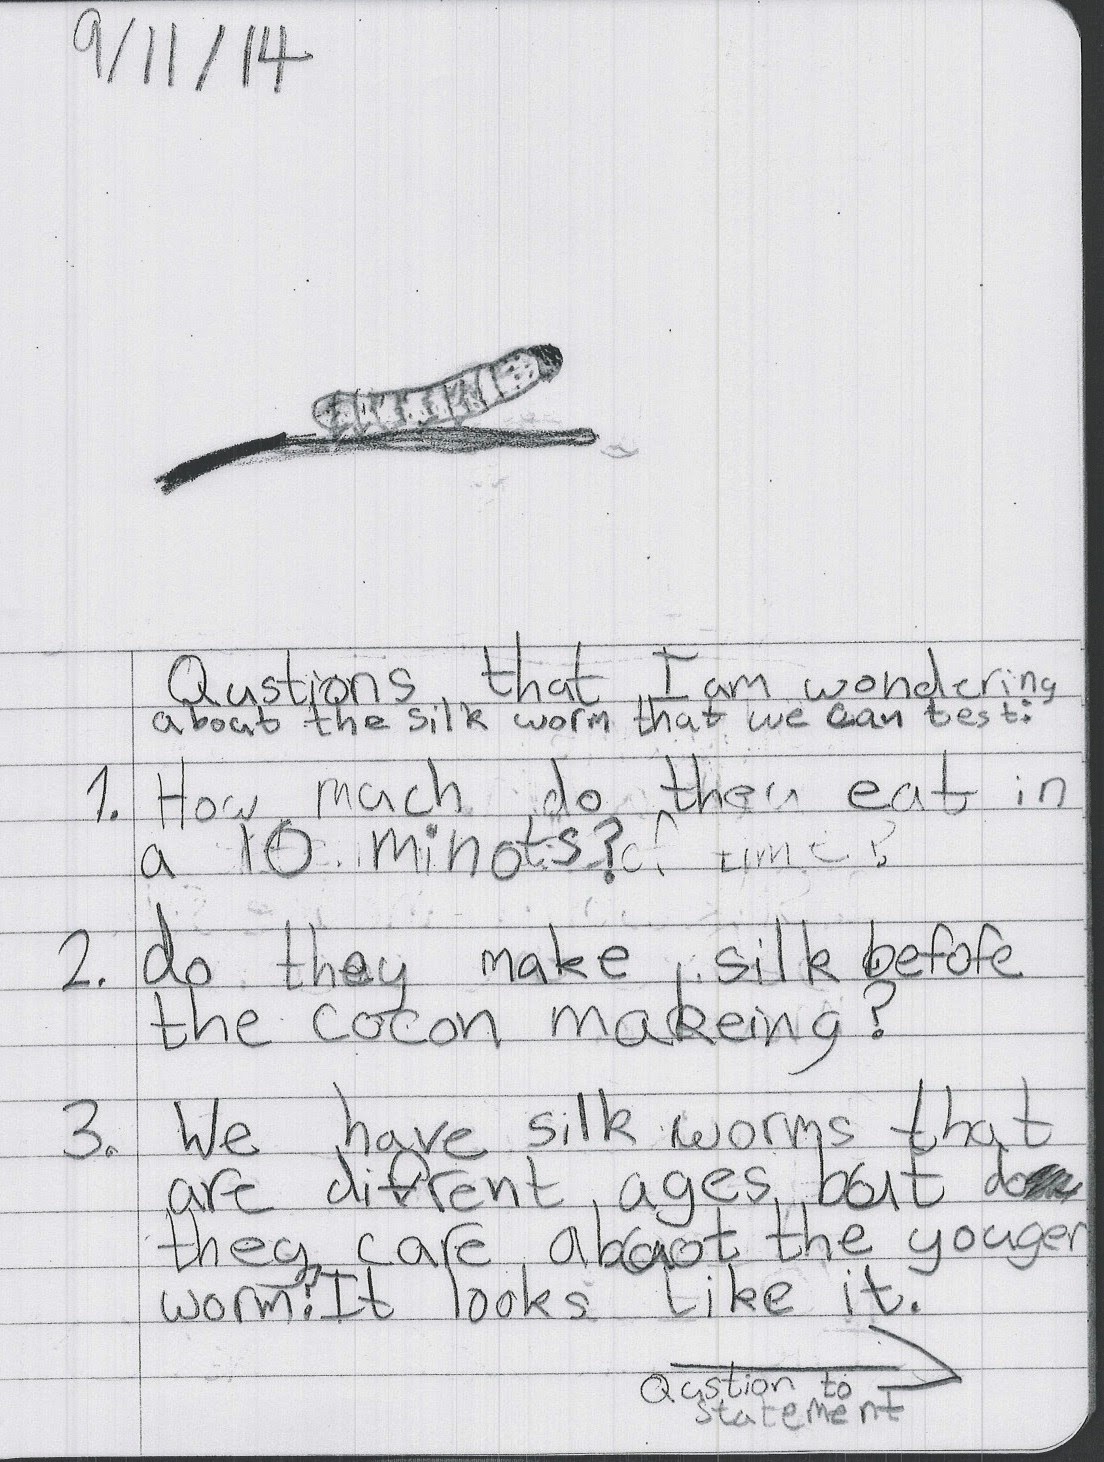 9/11/14
Qustions that I am wondering
about the silk worm that we can test:
1. How much do they eat in
a 10 minots? of time?
2. do they make silk before
the cocon makeing?
3. We have silk worms that
are difrent ages but do
they care about the youger
worm? It looks like it.
Qustion to
statement